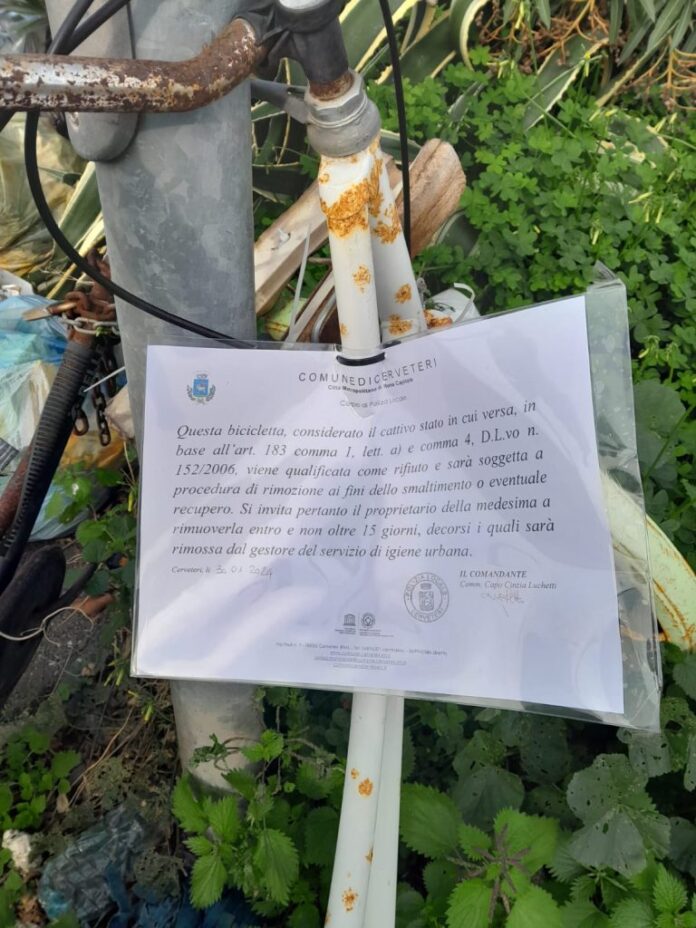 COMUNE DI CERVETERI
Città Metropolitana di Roma Capitale
Corpo di Polizia Locale
Questa bicicletta, considerato il cattivo stato in cui versa, in
base all'art. 183 comma 1, lett. a) e comma 4, D.L.vo n.
152/2006, viene qualificata come rifiuto e sarà soggetta a
procedura di rimozione ai fini dello smaltimento o eventuale
recupero. Si invita pertanto il proprietario della medesima a
rimuoverla entro e non oltre 15 giorni, decorsi i quali sarà
rimossa dal gestore del servizio di igiene urbana.
Cerveteri, li 30 01 2024
IL COMANDANTE
Comm. Capo Cinzia Luchetti
POLIZIA LOCALE
CERVETERI